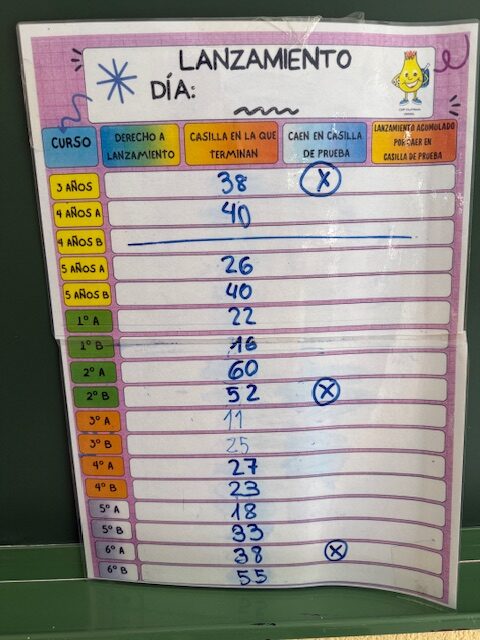 LANZAMIENTO
DÍA:
CURSO DERECHO A LANZAMIENTO CASILLA EN LA QUE TERMINAN CAEN EN CASILLA DE PRUEBA LANZAMIENTO ACUMULADO POR CAER EN CASILLA DE PRUEBA
3 AÑOS 38 X
4 AÑOS A 40
4 AÑOS B
5 AÑOS A 26
5 AÑOS B 40
1º A 22
1º B 16
2º A 60
2º B 52 X
3º A 11
3º B 25
4º A 27
4º B 23
5º A 18
5º B 33
6º A 38 X
6º B 55